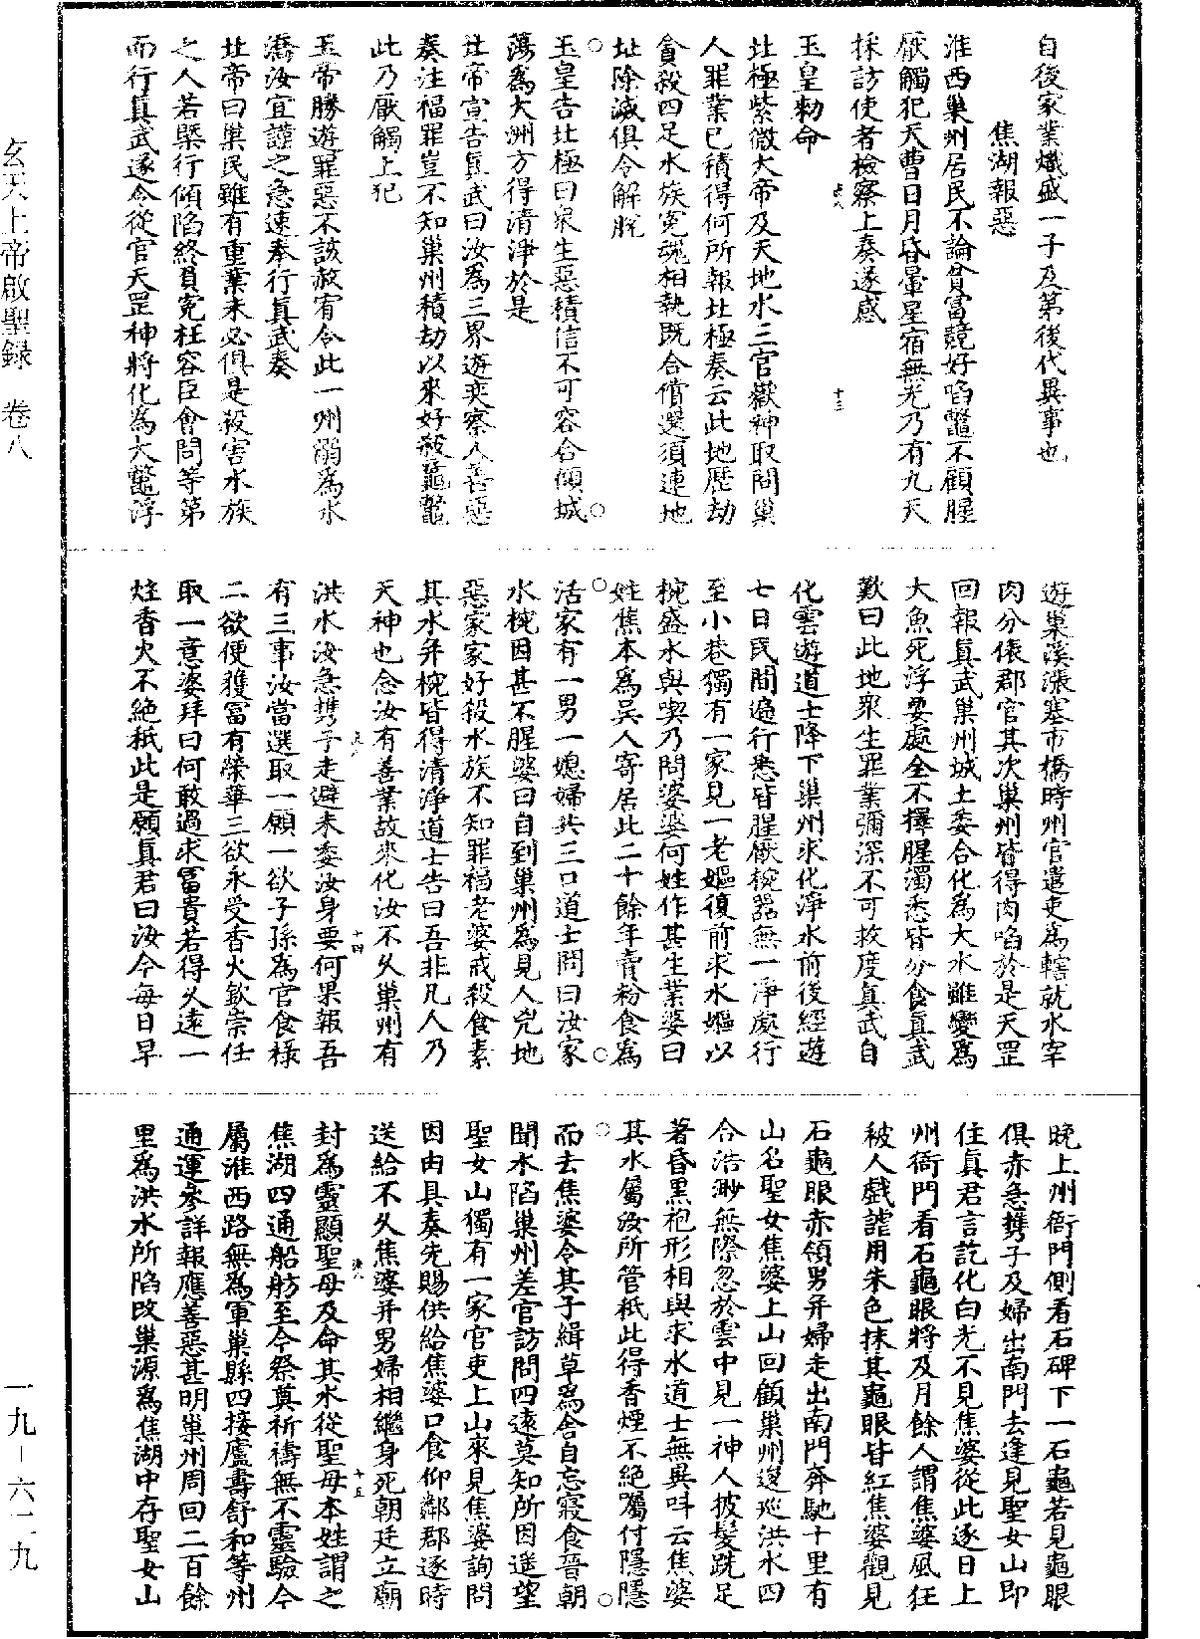 自後家業熾盛一子及第後代異事也
焦湖報惡
淮西巢州居民不論貧富競好啗鼈不顧腥
厭觸犯天曹日月昏暈星宿無光乃有九天
採訪使者檢察上奏遂感
玉皇勑命
北極紫微大帝及天地水三官嶽神取問巢
人罪業已積得何所報北極奏云此地歷劫
貪殺四足水族冤魂相執既合償還須連地
址除滅俱令解脫
玉皇告北極曰衆生惡積信不可容合傾城
蕩為大洲方得清淨於是
北帝宣告真武曰汝為三界遊奕察人善惡
奏注福罪豈不知巢州積劫以來好殺龜鼈
此乃厭觸上犯
玉帝勝遊罪惡不該赦宥令此一州溺為水
濤汝宜謹之急速奉行真武奏
北帝曰巢民雖有重業未必俱是殺害水族
之人若槩行傾陷終負冤枉容臣會問等第
而行真武遂令從官天罡神將化為大鼈浮
遊巢溪漲塞市橋時州官遣吏為轄就水宰
肉分俵郡官其次巢州皆得肉啗於是天罡
回報真武巢州城土委合化為大水雖變為
大魚死浮要處全不擇腥濁悉皆分食真武
歎曰此地衆生罪業彌深不可救度真武自
化雲遊道士降下巢州求化淨水前後經遊
七日民間遍行悉皆腥厭椀器無一凈處行
至小巷獨有一家見一老嫗復前求水嫗以
椀盛水與喫乃問婆婆何姓作甚生業婆曰
姓焦本為吳人寄居此二十餘年賣粉食為
活家有一男一媳婦共三口道士問曰汝家
水椀因甚不腥婆曰自到巢州為見人兇地
惡家家好殺水族不知罪福老婆戒殺食素
其水并椀皆得清淨道士告曰吾非凡人乃
天神也念汝有善業故來化汝不久巢州有
洪水汝急擕子走避未委汝身要何果報吾
有三事汝當選取一願一欲子孫為官食祿
二欲便獲冨有榮華三欲永受香火欽崇任
取一意婆拜曰何敢過求冨貴若得久遠一
炷香火不絕秖此是願真君曰汝今每日早
晚上州衙門側看石碑下一石龜若見龜眼
俱赤急擕子及婦出南門去逢見聖女山即
住真君言訖化白光不見焦婆從此逐日上
州衙門看石龜眼將及月餘人謂焦婆風狂
被人戲謔用朱色抹其龜眼皆紅焦婆觀見
石龜眼赤領男并婦走出南門奔馳十里有
山名聖女焦婆上山回顧巢州逡巡洪水四
合浩渺無際忽於雲中見一神人披髮跣足
著昏黑袍形相與求水道士無異呌云焦婆
其水屬汝所管秖此得香煙不絕囑付隱隱
而去焦婆令其子緝草為舍自忘寢食晉朝
聞水陷巢州差官訪問四遠莫知所因遥望
聖女山獨有一家官吏上山來見焦婆詢問
因由具奏先賜供給焦婆口食仰鄰郡逐時
送給不久焦婆并男婦相繼身死朝廷立廟
封為靈顯聖母及命其水從聖母本姓謂之
焦湖四通船舫至今祭奠祈禱無不靈驗今
屬淮西路無為軍巢縣四接廬壽舒和等州
通運參詳報應善惡甚明巢州周回二百餘
里為洪水所陷改巢源為焦湖中存聖女山
十三
十四
十五
玄天上帝啟聖録　卷八
一九－六二九